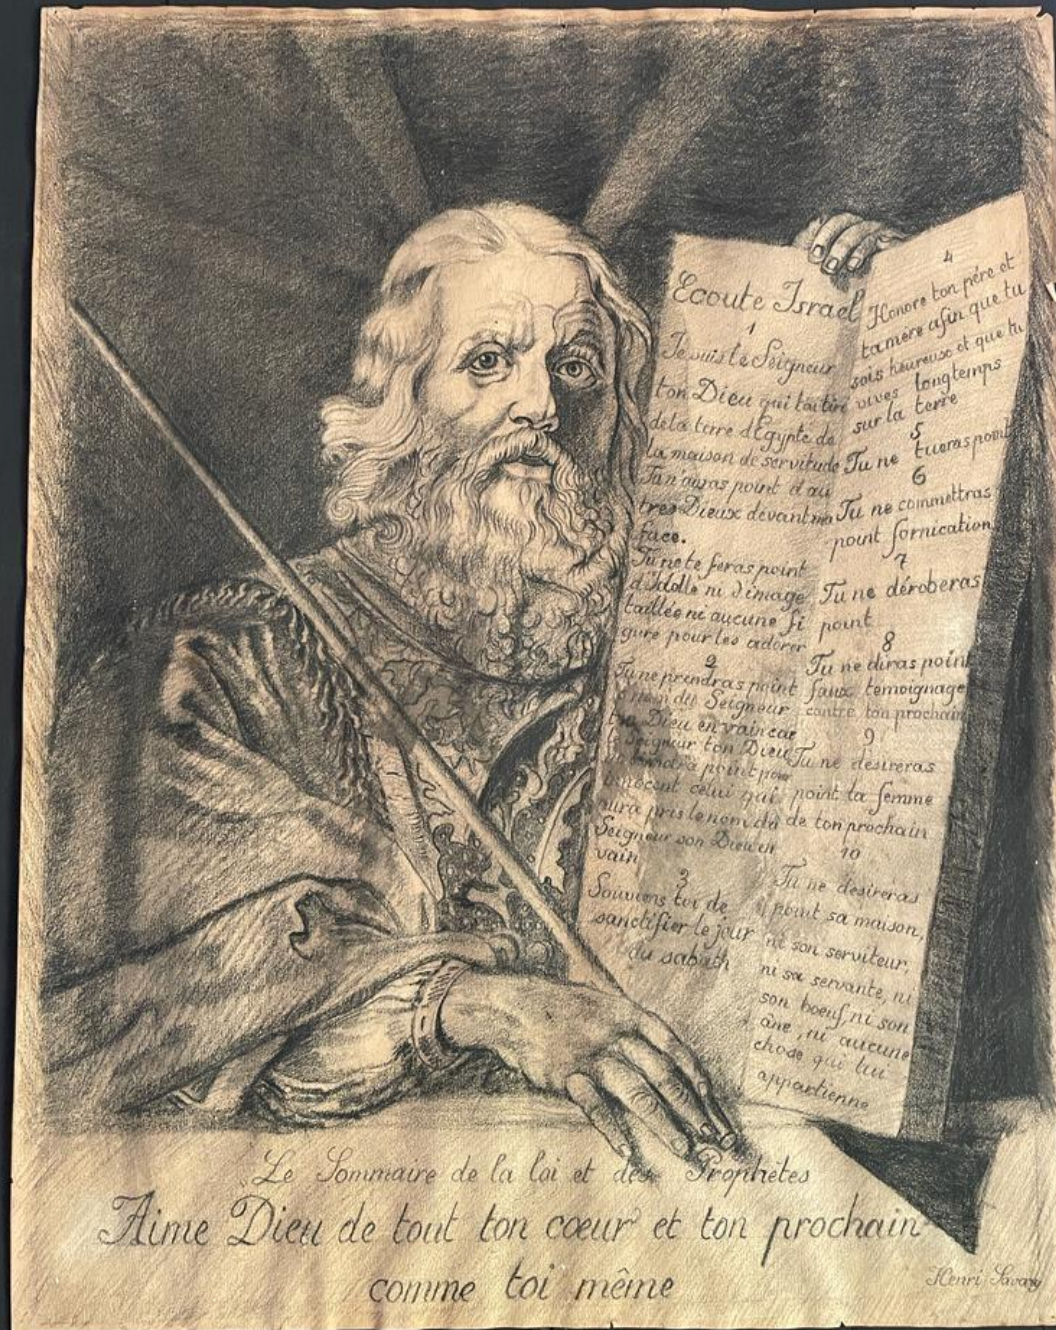 Ecoute Israel
1
Je suis le Seigneur
ton Dieu qui t'ai tiré
de la terre d'Egypte de
la maison de servitude
Tu n'auras point d'au
tres Dieux devant ma
face.
Tu ne te feras point
d'Idolle ni d'image
taillée ni aucune fi
gure pour les adorer
2
Tu ne prendras point
nom du Seigneur
ton Dieu en vain car
Seigneur ton Dieu
tiendra point pour
innocent celui qui
aura pris le nom du
Seigneur son Dieu en
vain
3
Souviens toi de
sanctifier le jour
du sabath
4
Honore ton père et
ta mère afin que tu
sois heureux et que tu
vives longtemps
sur la terre
5
Tu ne tueras point
6
Tu ne commettras
point fornication
7
Tu ne déroberas
point
8
Tu ne diras point
faux temoignage
contre ton prochain
9
Tu ne desireras
point la femme
de ton prochain
10
Tu ne desireras
point sa maison,
ni son serviteur,
ni sa servante, ni
son boeuf, ni son
âne, ni aucune
chose qui lui
appartienne
Le Sommaire de la loi et des Prophètes
Aime Dieu de tout ton cœur et ton prochain
comme toi même
Henri Savary